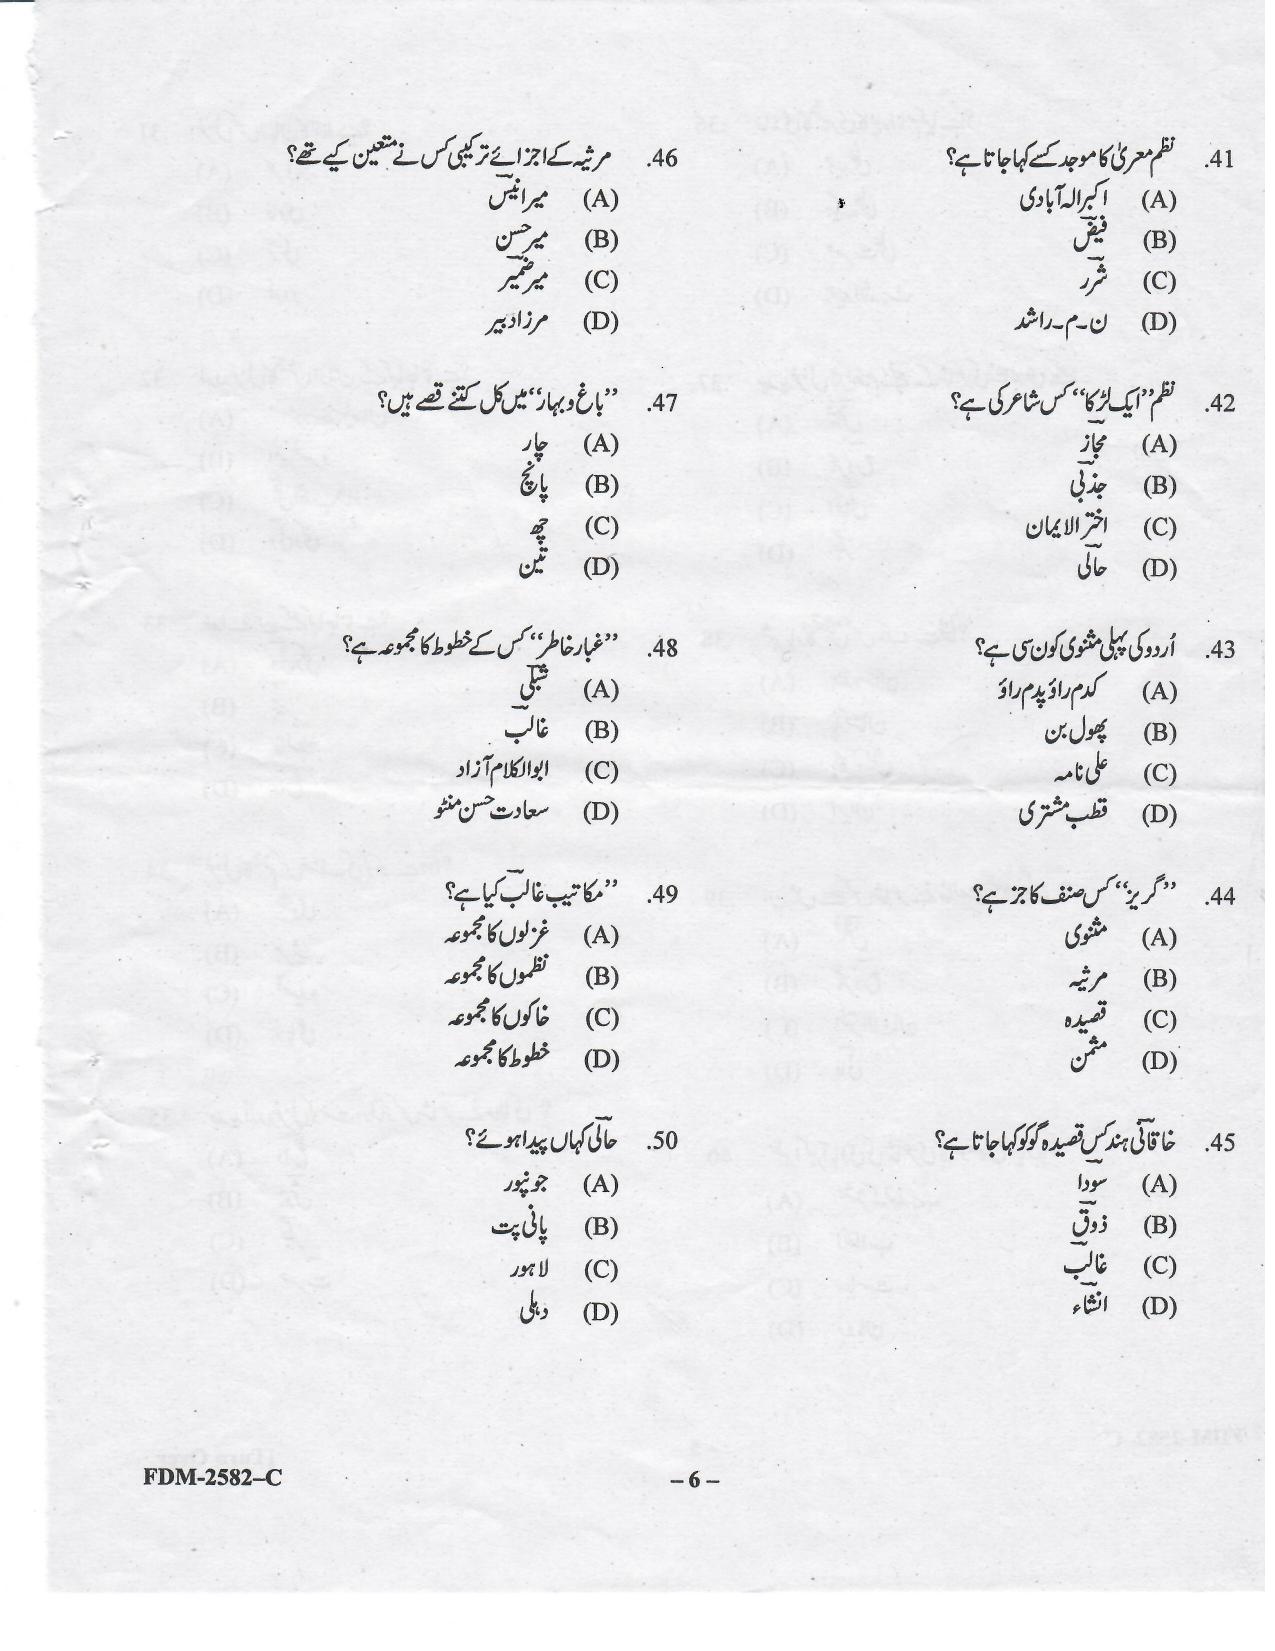 41. نظم معریٰ کا موجد کسے کہا جاتا ہے؟
(A) اکبر الہ آبادی
(B) فیض
(C) شرر
(D) ن-م-راشد
42. نظم ”ایک لڑکا“ کس شاعر کی ہے؟
(A) مجاز
(B) جذبی
(C) اختر الایمان
(D) حالی
43. اُردو کی پہلی مثنوی کون سی ہے؟
(A) کدم راؤ پدم راؤ
(B) پھول بن
(C) علی نامہ
(D) قطب مشتری
44. ”گریز“ کس صنف کا جز ہے؟
(A) مثنوی
(B) مرثیہ
(C) قصیدہ
(D) مثمن
45. خاقانی ہند کس قصیدہ گو کو کہا جاتا ہے؟
(A) سودا
(B) ذوق
(C) غالب
(D) انشاء
46. مرثیہ کے اجزائے ترکیبی کس نے متعین کیے تھے؟
(A) میر انیس
(B) میر حسن
(C) میر ضمیر
(D) مرزا دبیر
47. ”باغ و بہار“ میں کل کتنے قصے ہیں؟
(A) چار
(B) پانچ
(C) چھ
(D) تین
48. ”غبار خاطر“ کس کے خطوط کا مجموعہ ہے؟
(A) شبلی
(B) غالب
(C) ابوالکلام آزاد
(D) سعادت حسن منٹو
49. ”مکاتیب غالب کیا ہے؟
(A) غزلوں کا مجموعہ
(B) نظموں کا مجموعہ
(C) خاکوں کا مجموعہ
(D) خطوط کا مجموعہ
50. حالی کہاں پیدا ہوئے؟
(A) جونپور
(B) پانی پت
(C) لاہور
(D) دہلی
FDM-2582–C
– 6 –